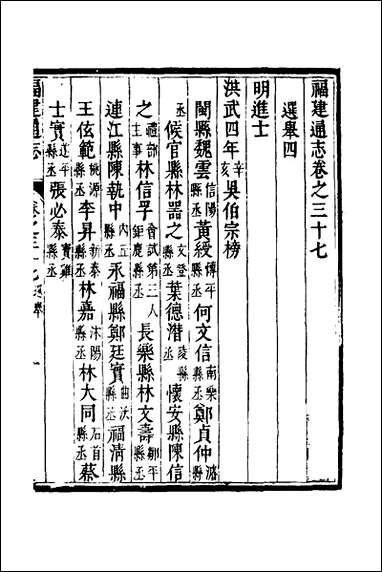 福建通志卷之三十七
選舉四
明進士
洪武四年辛亥吳伯宗榜
閩縣魏雲信陽縣丞黃綬博平縣丞何文信南樂縣丞鄭貞仲潞縣
丞候官縣林器之文登縣丞葉德潛陵縣丞懷安縣陳信
之禮部主事林信孚會試第三人鉅鹿縣丞長樂縣林文壽鄒平縣丞
連江縣陳執中內丘縣丞永福縣鄭廷實曲沃縣丞福清縣
王伭範桃源縣丞李昇新泰縣丞林嘉沐陽縣丞林大同石首縣丞蔡
士實遂平縣丞張必泰寶雞縣丞
福建通志